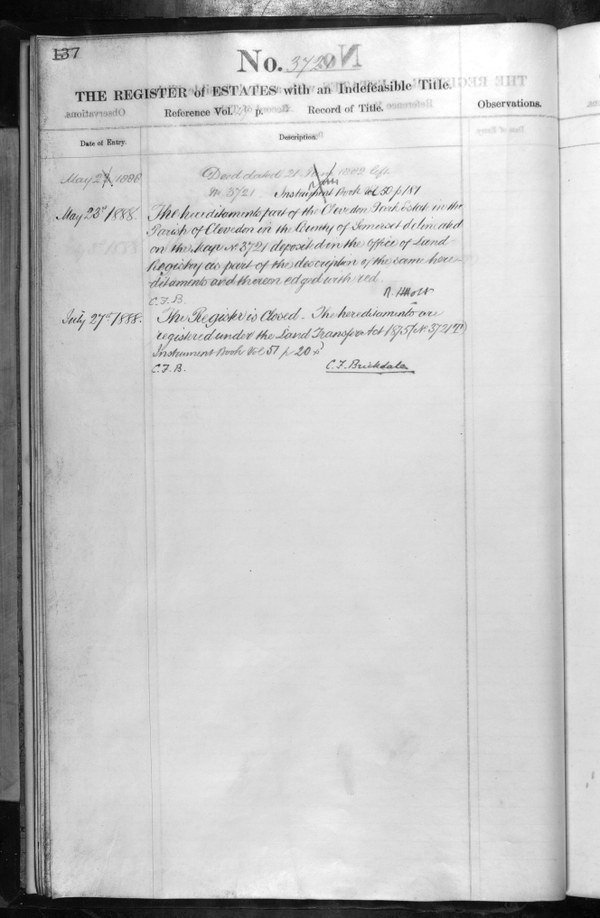 137
No. 3721
THE REGISTER of ESTATES with an Indefeasible Title.
Reference Vol. p. Record of Title. Observations.
Date of Entry. Description.
May 2 1888 Deed dated 21 1882 left
No. 3721 Instrument Book Vol. 50 p 181
May 23rd 1888. The hereditaments part of the Clevedon Park Estate in the
Parish of Clevedon in the County of Somerset delineated
on the Map No. 3721 deposited in the Office of Land
Registry as part of the description of the same here-
ditaments and thereon edged with red.
C.F.B.
July 27th 1888. The Register is Closed. The hereditaments are
registered under the Land Transfer Act 1875 (No 3721
Instrument Book Vol 51 p 20
C.F.B. C.F. Brickdale